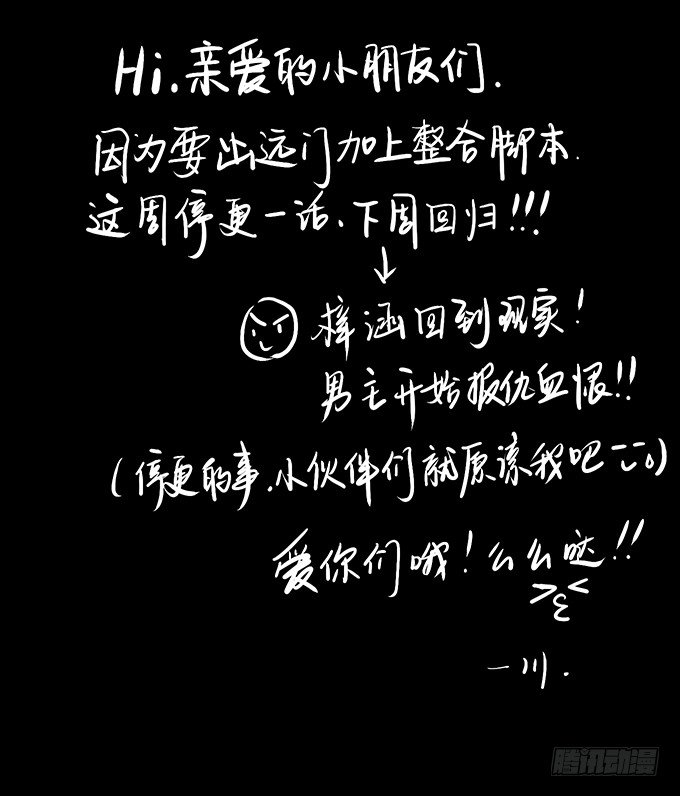 Hi.亲爱的小朋友们.
因为要出远门加上整合脚本.
这周停更一话、下周回归!!!
↓
梓涵回到现实!
男主开始报仇血恨!!
(停更的事.小伙伴们就原谅我吧 ニニo)
爱你们哦!么么哒!!
>ε<
一川.
腾讯动漫